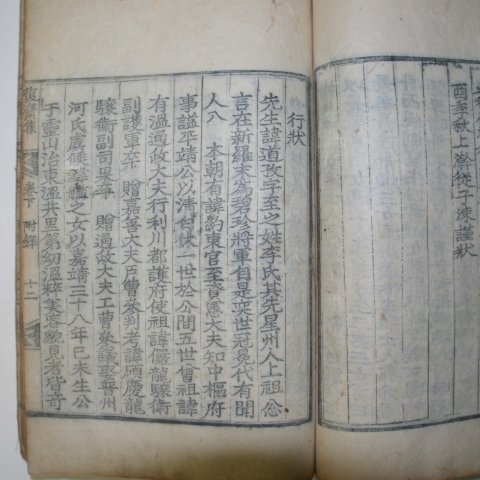 酉季秋上澣從子涑謹狀
行狀
先生諱道孜字至之姓李氏其先星州人上祖忩
言在新羅末爲碧珍將軍自是奕世冠冕代有聞
人八 本朝有諱約東官至資憲大夫知中樞府
事謚平靖公以淸白林一世於公間五世曾祖諱
有溫通政大夫行利川都護府使祖諱儼龍驤衛
副護軍卒 贈嘉善大夫戶曹參判考諱 慶龍
驤衛副司果卒 贈通政大夫工曹參議娶晉州
河氏虞候 之女以嘉靖三十八年己未生公
于靈山治東溫井里第幼溫粹美容貌見者皆奇
復齋集
卷下
附錄
十二